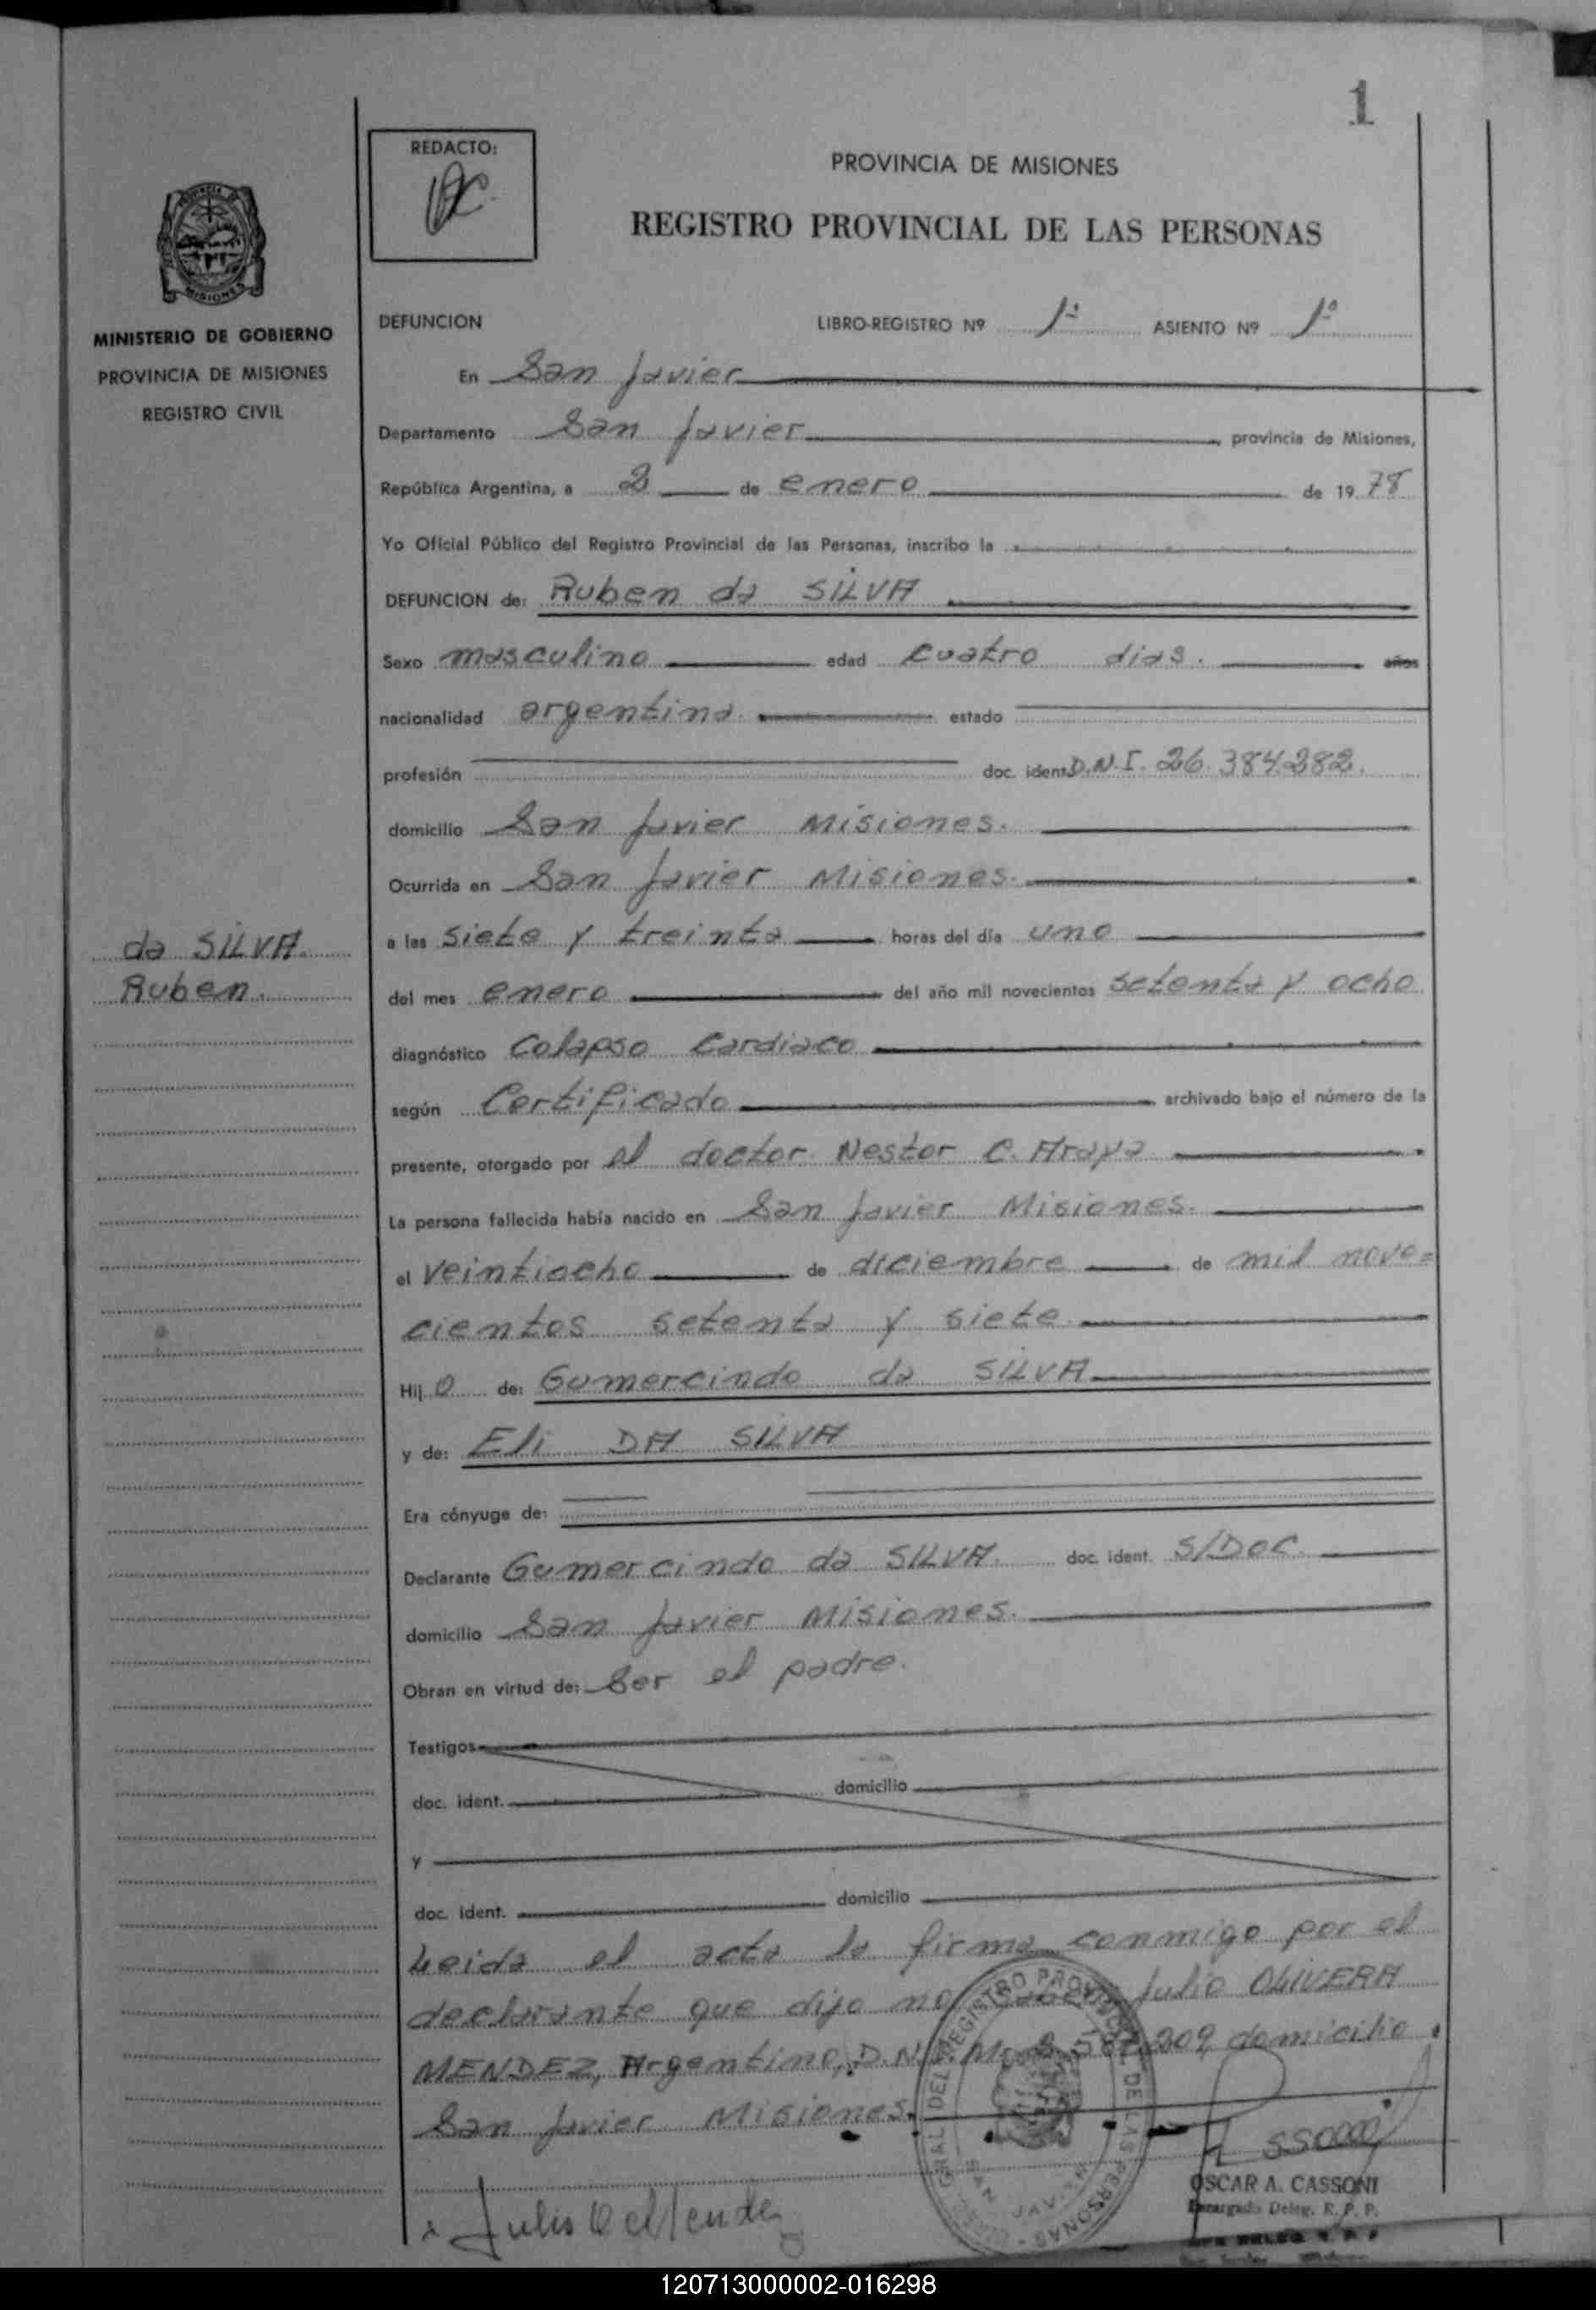 1
REDACTO:
PROVINCIA DE MISIONES
REGISTRO PROVINCIAL DE LAS PERSONAS
MINISTERIO DE GOBIERNO
PROVINCIA DE MISIONES
REGISTRO CIVIL
DEFUNCION LIBRO-REGISTRO Nº 1º ASIENTO Nº 1º
En San Javier
Departamento San Javier provincia de Misiones,
República Argentina, a 2 de enero de 19 78
Yo Oficial Público del Registro Provincial de las Personas, inscribo la
DEFUNCION de: Ruben da SILVA
Sexo masculino edad cuatro dias. años
nacionalidad argentina. estado
profesión doc. ident. D.N.I. 26.384.282.
domicilio San Javier Misiones.
Ocurrida en San Javier Misiones.
da SILVA.
Ruben.
a las siete y treinta horas del día uno
del mes enero del año mil novecientos setenta y ocho
diagnóstico Colapso Cardiaco
según Certificado archivado bajo el número de la
presente, otorgado por el doctor Nestor C. Araya
La persona fallecida había nacido en San Javier Misiones.
el veintiocho de diciembre de mil nove=
cientos setenta y siete
Hij o de: Gumercindo da SILVA
y de: Eli DA SILVA
Era cónyuge de:
Declarante Gumercindo da SILVA. doc. ident. S/DOC.
domicilio San Javier Misiones.
Obran en virtud de: Ser el padre.
Testigos
doc. ident. domicilio
y
doc. ident. domicilio
Leida el acta la firma conmigo por el
declarante que dijo no saber Julio OLIVERA
MENDEZ, Argentino, D.N.I. domicilio
San Javier Misiones.
OSCAR A. CASSONI
Encargado Deleg. R. P. P.
120713000002-016298